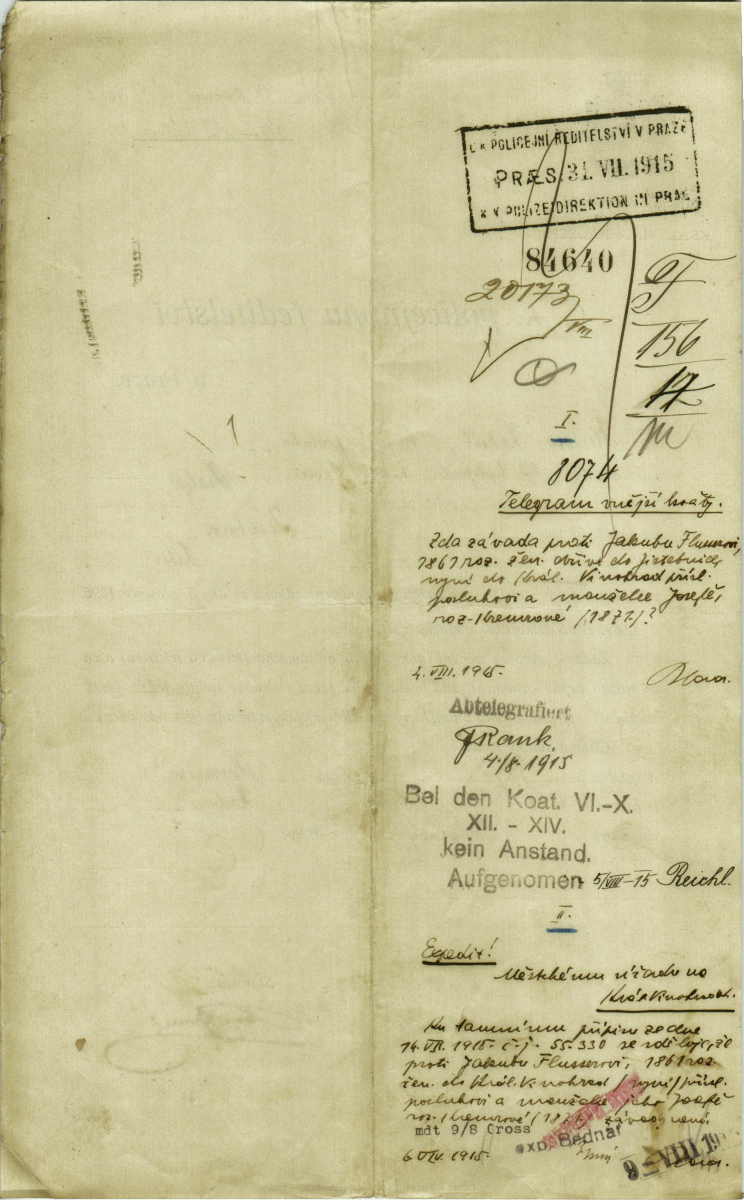 C.K. POLICEJNÍ ŘEDITELSTVÍ V PRAZE
PRÆS. 31. VII. 1915
K.K. POLIZEIDIREKTION IN PRAG
84640
20173
VIII
156
17
I.
8074
Telegram vnější koáty.
Zda závada proti Jakubu Flusserovi,
1861 roz. žen. dříve do
nyní do Král. Vinohrad přísl.
posluhovi a manželce Josefě,
roz. (1871)?
4. VIII. 1915.
Abtelegrafiert
Frank
4./8. 1915
Bei den Koat. VI.-X.
XII. - XIV.
kein Anstand.
Aufgenomen 5/VIII-15 Reichl.
II.
Expedit!
Městskému úřadu na
Král. Vinohradech.
Ku tamnímu přípisu ze dne
14. VII. 1915 č.j. 55.330 se sděluje, že
proti Jakubu Flusserovi, 1861 roz.
žen. do Král. Vinohrad (nyní) přísl.
posluhovi a manželce jeho Josefě
roz. (1871) závad není.
mdt 9/8 Cross
exp. Bednář
6. VIII. 1915.
9 - VIII 19